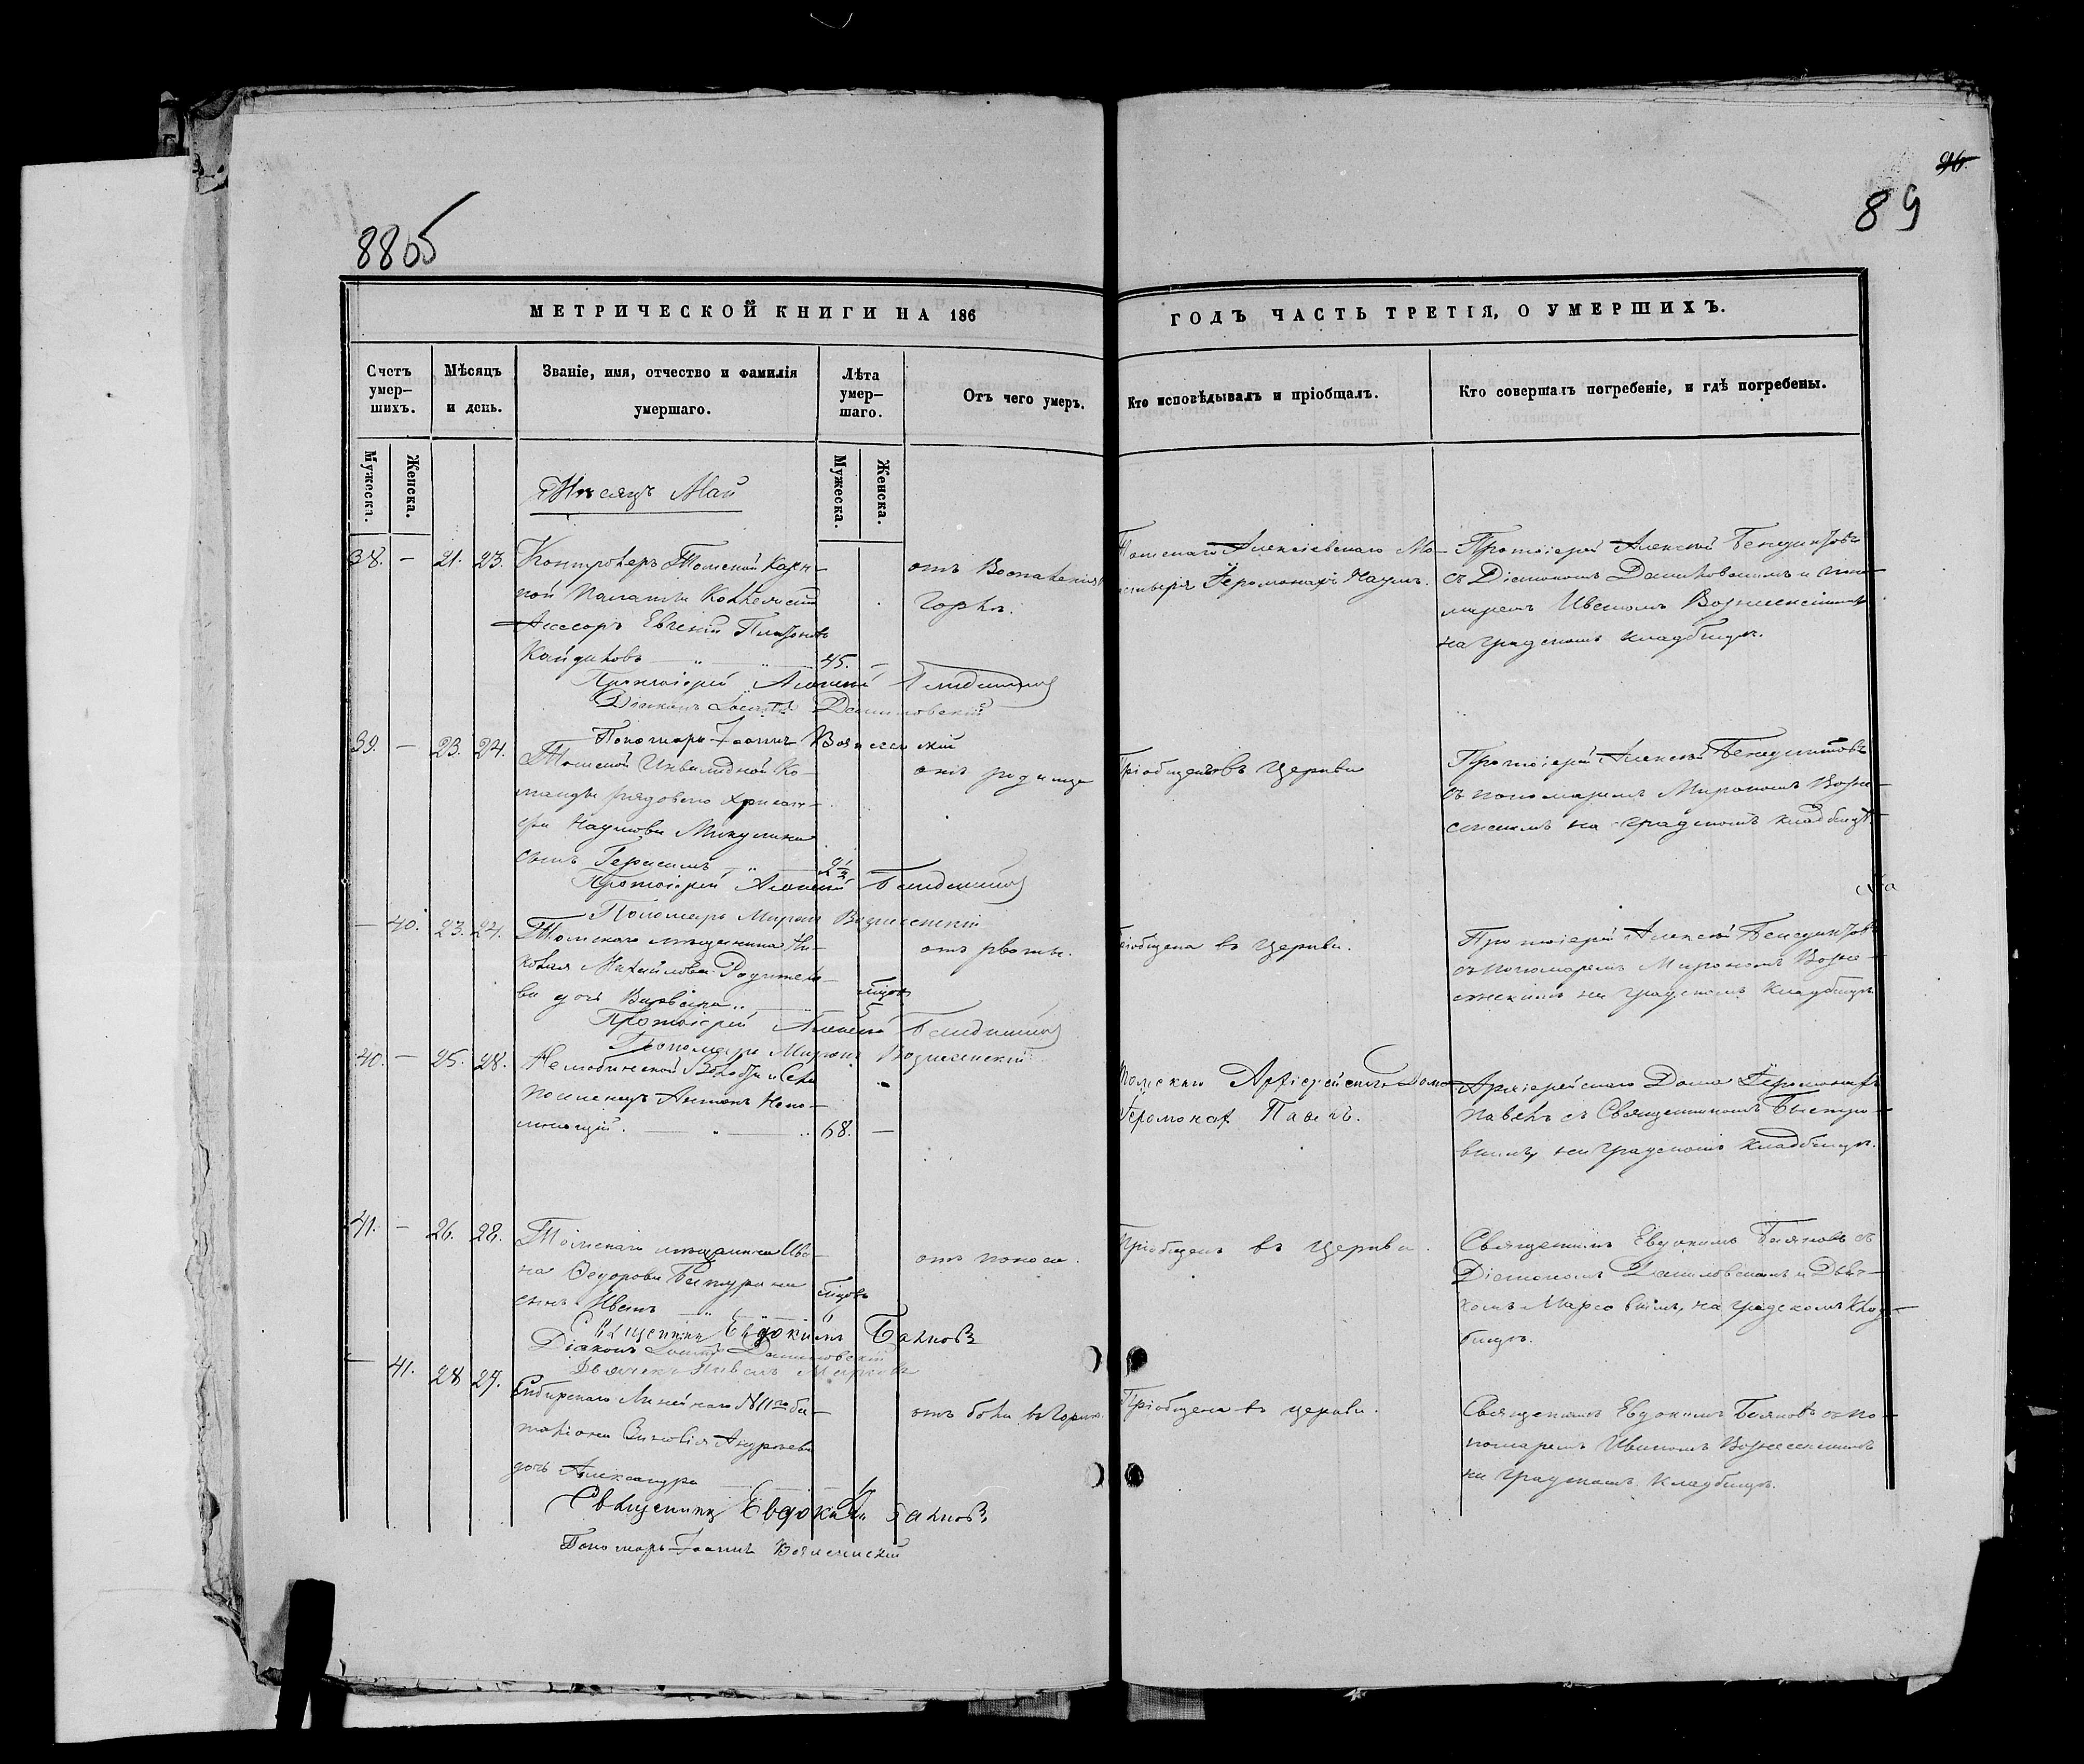 8805
96.
89
МЕТРИЧЕСКОЙ КНИГИ НА 186
ГОДЪ ЧАСТЬ ТРЕТІЯ, О УМЕРШИХЪ.
Счетъ умер-
шихъ.
Мѣсяцъ
и день.
Званіе, имя, отчество и фамилія
умершаго.
Лѣта
умер-
шаго.
Отъ чего умеръ.
Кто исповѣдывалъ и пріобщалъ.
Кто совершалъ погребеніе, и гдѣ погребены.
Мужеска.
Женска.
Мужеска.
Женска.
Мѣсяцъ Май
38. — 21. 23.
Контролеръ Томской Казен-
ной Палаты Коллежскій
Ассесоръ Евгеній Платоновъ
Кайдаловъ 45. —
отъ Воспаленія
горла.
Томскаго Алексіевскаго Мо-
Іеромонахъ Наумъ.
Протоіерей Алексѣй Бенедиктовъ
съ Діакономъ Даниловскимъ и поно-
маремъ Иваномъ Вознесенскимъ
на градскомъ кладбищѣ.
Протоіерей Алексѣй Бенедиктовъ
Діаконъ Даниловскій
Пономарь Іоаннъ Вознесенскій
39. — 23. 24.
Томской Инвалидной Ко-
манды рядоваго
Наумова Микулина
сынъ Герасимъ 2½
отъ родимца
Пріобщенъ въ Церкви
Протоіерей Алексѣй Бенедиктовъ
съ пономаремъ Мирономъ Возне-
сенскимъ на градскомъ кладбищѣ
Протоіерей Алексѣй Бенедиктовъ
Пономарь Миронъ Вознесенскій
— 40. 23. 24.
Томскаго мѣщанина Ни-
колая Михайлова Родителе-
ва дочь Варвара
мѣсяц
5
отъ рвоты.
Пріобщена въ Церкви.
Протоіерей Алексѣй Бенедиктовъ
съ пономаремъ Мирономъ Возне-
сенскимъ на градскомъ кладбищѣ
Протоіерей Алексѣй Бенедиктовъ
Пономарь Миронъ Вознесенскій
40. — 25. 28.
Нелюбинской Волости и Села
поселенецъ Антонъ Непо-
мнющій. 68. —
Томскаго Архіерейскаго Дома
Іеромонах Павелъ.
Архіерейскаго Дома Іеромонахъ
Павелъ съ Священникомъ Быстро-
вымъ, на градскомъ кладбищѣ.
41. — 26. 28.
Томскаго мѣщанина Ива-
на Ѳедорова Батурина
сынъ Иванъ
мѣсяцъ
6
отъ поноса.
Пріобщенъ въ Церкви.
Священникъ Евдокимъ Баяновъ съ
Діакономъ Даниловскимъ и Дьяч-
комъ Марсовымъ, на градскомъ клад-
бищѣ.
Священникъ Евдокимъ Баяновъ
Діаконъ Даниловскій
Дьячекъ
— 41. 28 29.
Сибирскаго Линейнаго №11го ба-
таліона Андреева
дочь Александра
отъ боли въ горлѣ.
Пріобщена въ церкви.
Священникъ Евдокимъ Баяновъ съ по-
номаремъ Иваномъ Вознесенскимъ
на градскомъ кладбищѣ.
Священникъ Евдокимъ Баяновъ
Пономарь Іоаннъ Вознесенскій